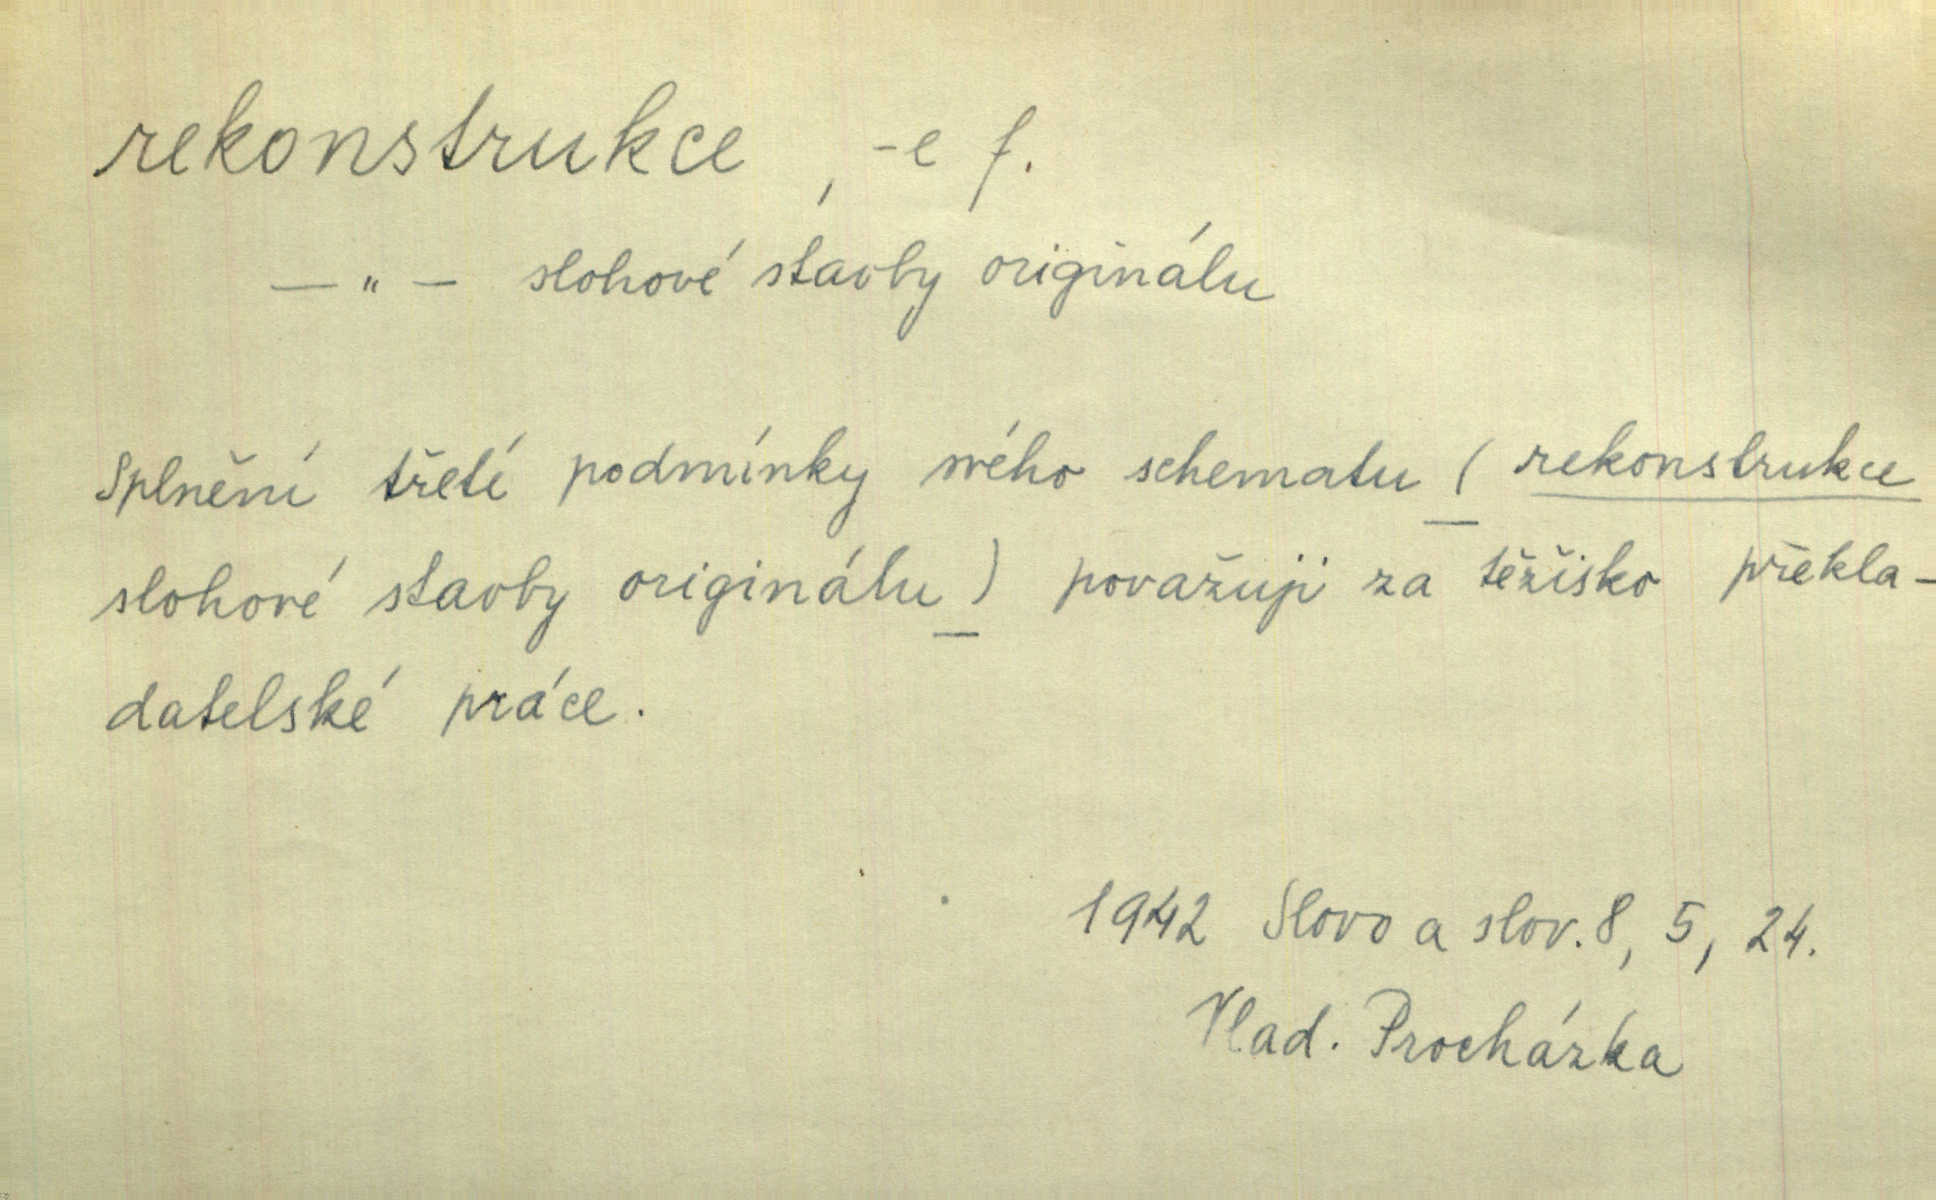 rekonstrukce, -e f.
— " — slohové stavby originálu
Splnění třetí podmínky svého schematu (rekonstrukce
slohové stavby originálu) považuji za těžisko překla-
datelské práce.
1942 Slovo a slov. 8, 5, 24.
Vlad. Procházka